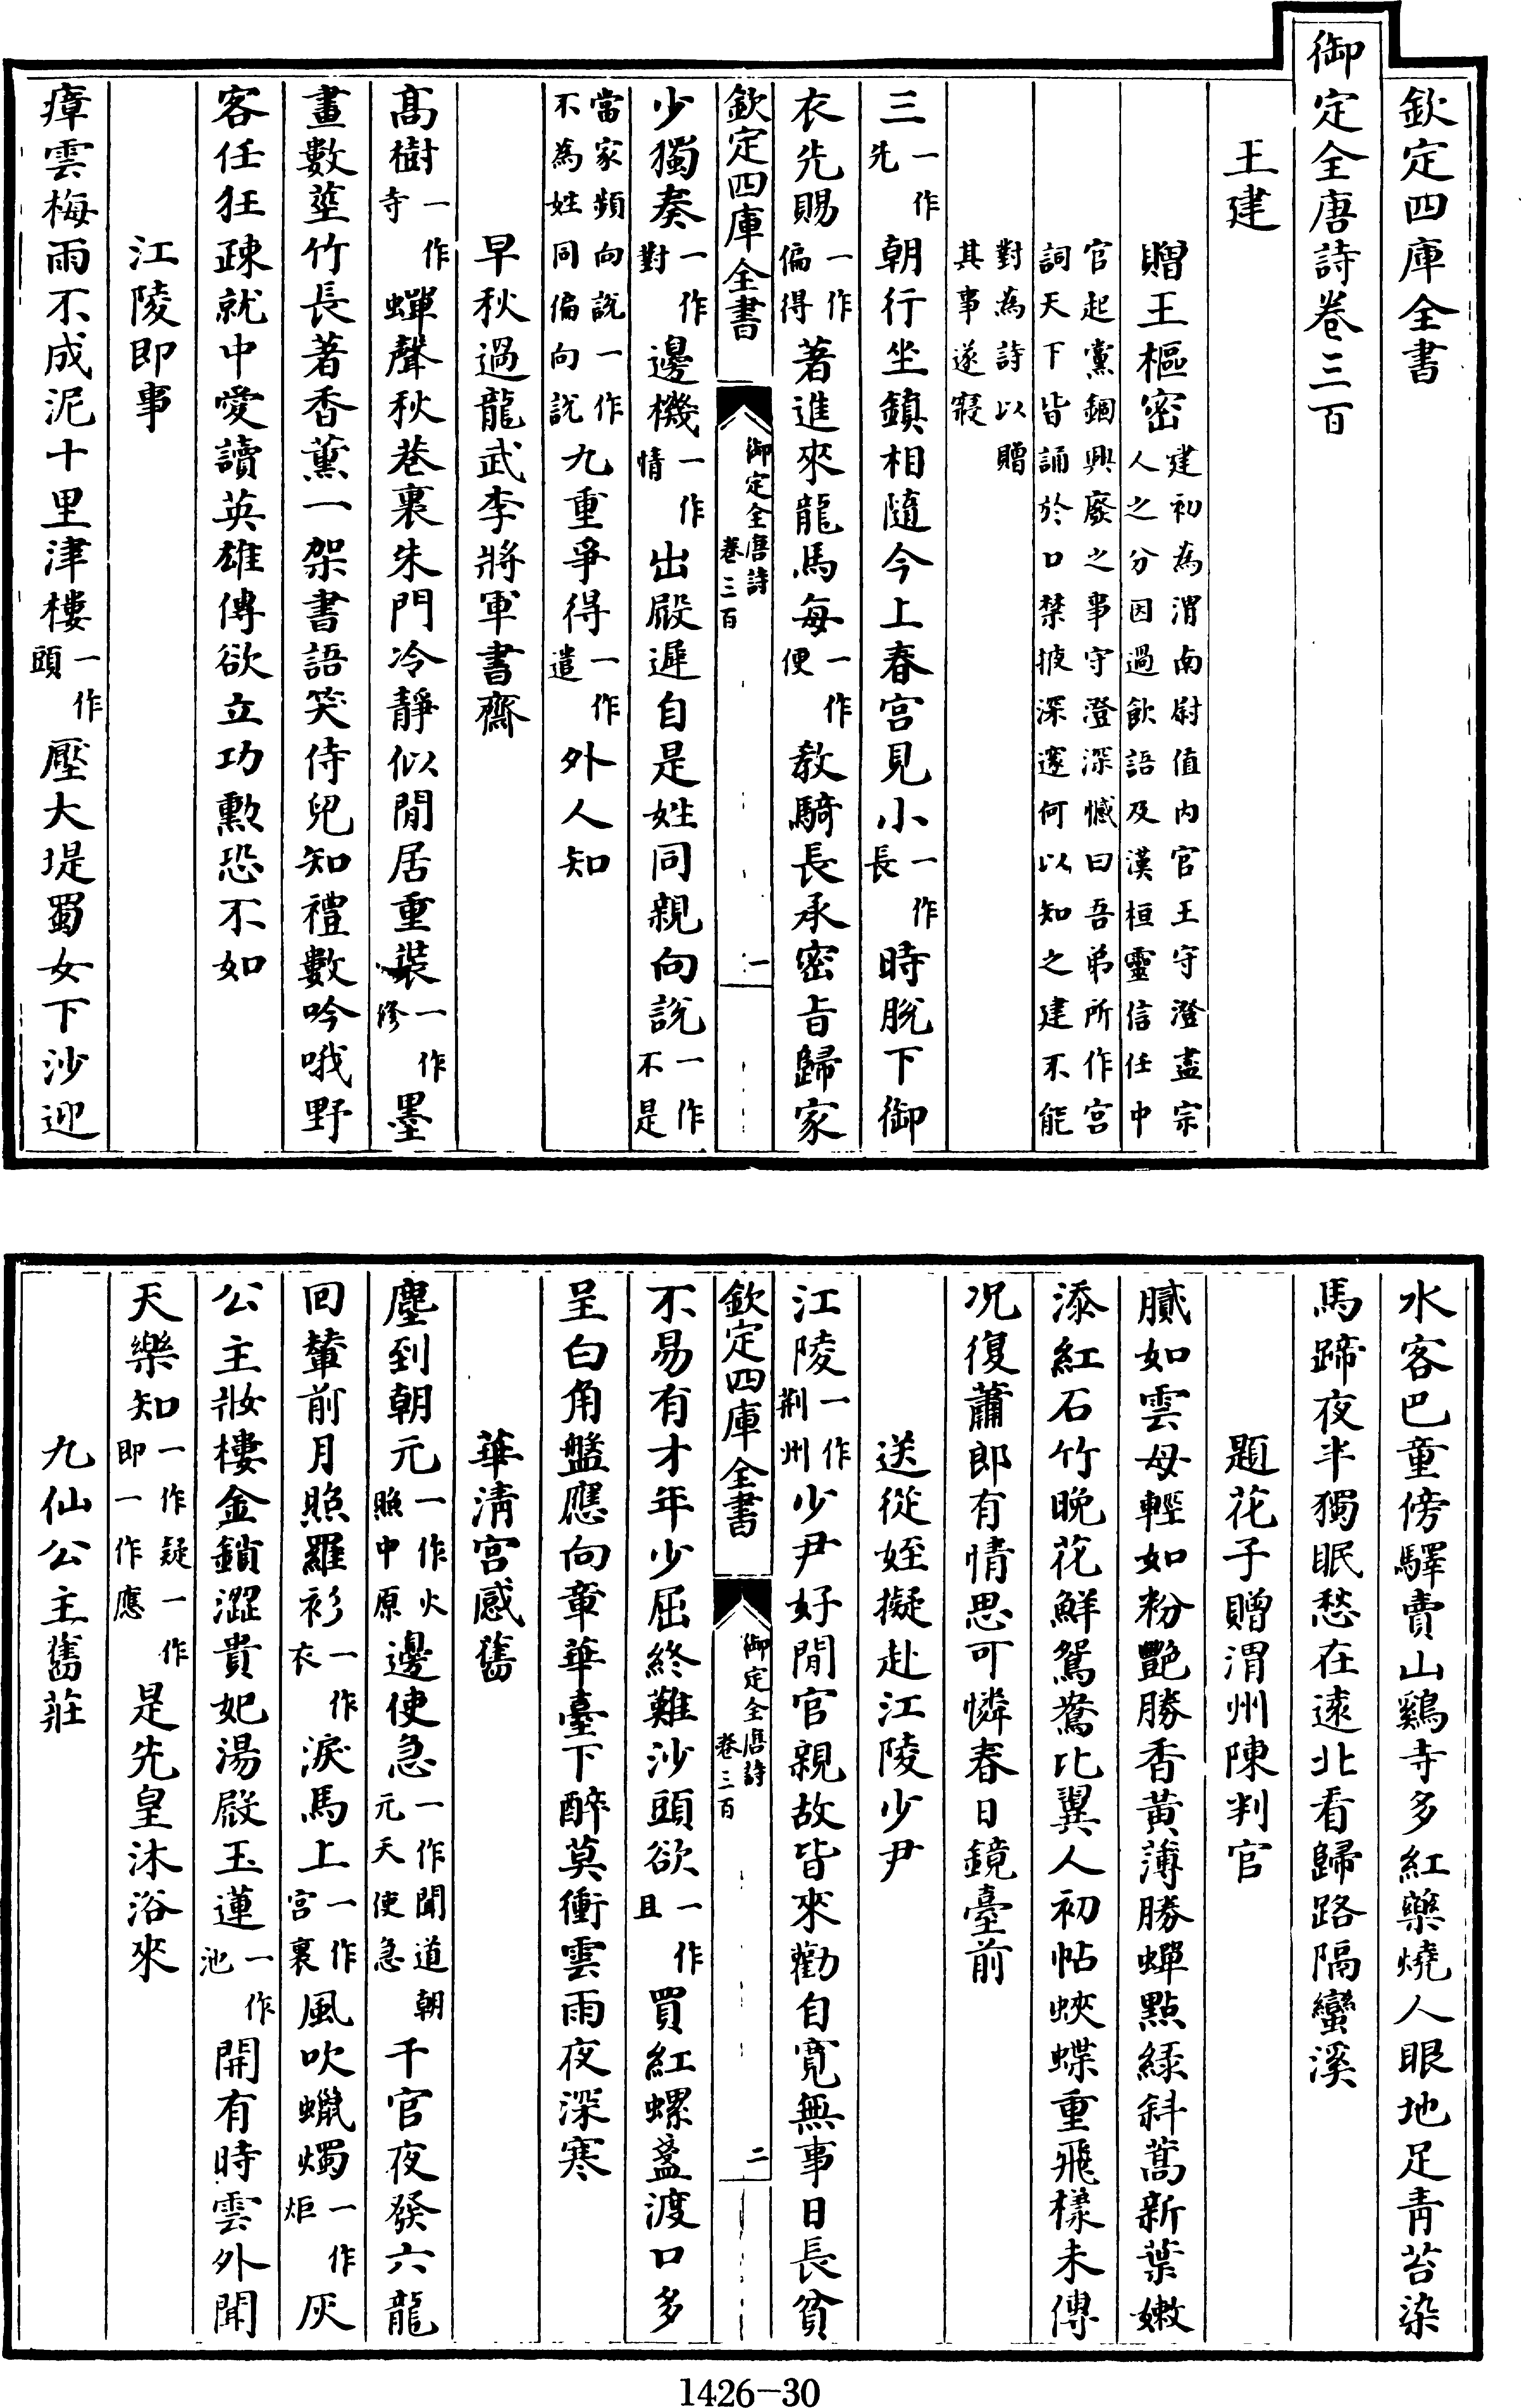 欽定四庫全書
御定全唐詩卷三百
王建
贈王樞密建初為渭南尉值内官王守澄盡宗人之分因過飲語及漢桓靈信任中
官起黨錮興廢之事守澄深憾曰吾弟所作宮詞天下皆誦於口禁掖深邃何以知之建不能
對為詩以贈其事遂寢
三一作先朝行坐鎮相隨今上春宮見小一作長時脫下御
衣先賜一作偏得著進來龍馬每一作便教騎長承密旨歸家
欽定四庫全書 御定全唐詩卷三百 一
少獨奏一作對邊機一作情出殿遲自是姓同親向說一作不是
當家頻向說一作不為姓同偏向說九重爭得一作遣外人知
早秋過龍武李將軍書齋
髙樹一作寺蟬聲秋巷裏朱門冷靜似閒居重裝一作修墨
畫數莖竹長著香薰一架書語笑侍兒知禮數吟哦野
客任狂疎就中愛讀英雄傳欲立功勲恐不如
江陵即事
瘴雲梅雨不成泥十里津樓一作頭壓大堤蜀女下沙迎
水客巴童傍驛賣山鷄寺多紅藥燒人眼地足青苔染
馬蹄夜半獨眠愁在逺北看歸路隔蠻溪
題花子贈渭州陳判官
膩如雲母輕如粉艷勝香黃薄勝蟬點綠斜蒿新葉嫩
添紅石竹晚花鮮鴛鴦比翼人初帖蛺蝶重飛樣未傳
况復蕭郎有情思可憐春日鏡臺前
送從姪擬赴江陵少尹
江陵一作荆州少尹好閒官親故皆來勸自寛無事日長貧
欽定四庫全書 御定全唐詩卷三百 二
不易有才年少屈終難沙頭欲一作且買紅螺盞渡口多
呈白角盤應向章華臺下醉莫衝雲雨夜深寒
華清宮感舊
塵到朝元一作火照中原邊使急一作聞道朝元天使急千官夜發六龍
回輦前月照羅衫一作衣淚馬上一作宮裏風吹蠟燭一作炬灰
公主妝樓金鎖澀貴妃湯殿玉蓮一作池開有時雲外聞
天樂知一作疑一作即一作應是先皇沐浴來
九仙公主舊莊
1426-30